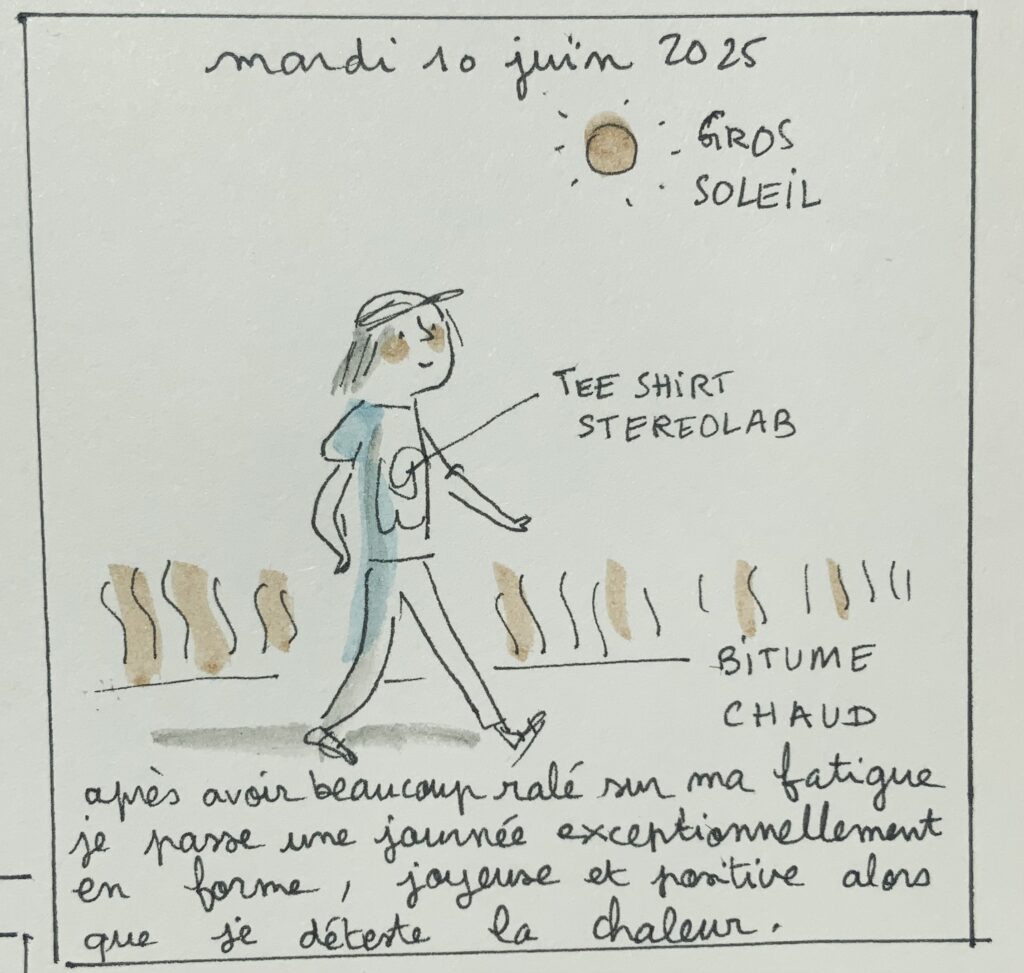 mardi 10 juin 2025
GROS
SOLEIL
TEE SHIRT
STEREOLAB
BITUME
CHAUD
après avoir beaucoup ralé sur ma fatigue
je passe une journée exceptionnellement
en forme, joyeuse et positive alors
que je déteste la chaleur.